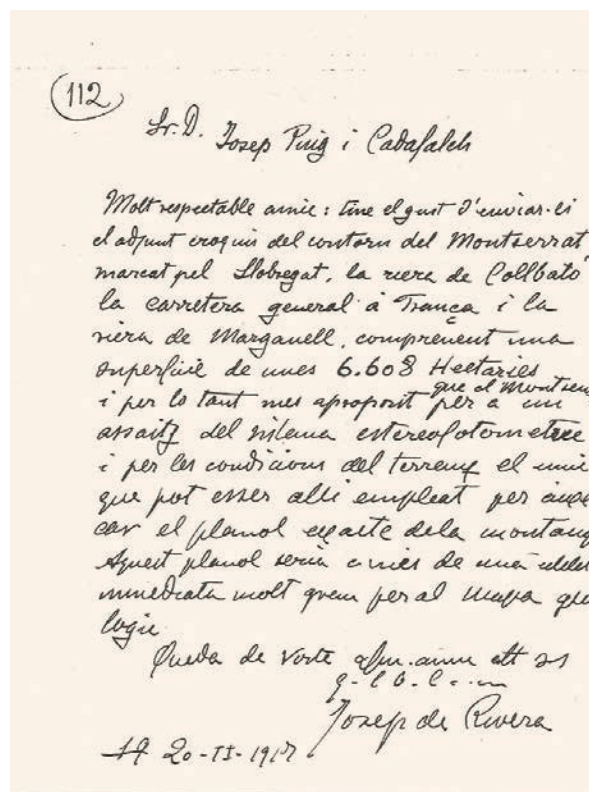 112
Sr. D. Josep Puig i Cadafalch
Molt respectable amic: tinc el gust d'enviar-li
el adjunt croquis del contorn del Montserrat
marcat pel Llobregat, la riera de Collbató
la carretera general á França i la
riera de Marganell, comprenent una
superficie de unes 6.608 Hectaries
que el Montseny
i per lo tant mes aproposit per a un
assaitg del sistema estereofotometric
i per les condicions del terreny el unic
que pot esser alli empleat per
car el planol exacte dela
Aquest planol seria a mes de una
inmediata molt per al mapa geo
logic
Queda de Vosté afm. amic att ss
Josep de Rivera
20-II-1917